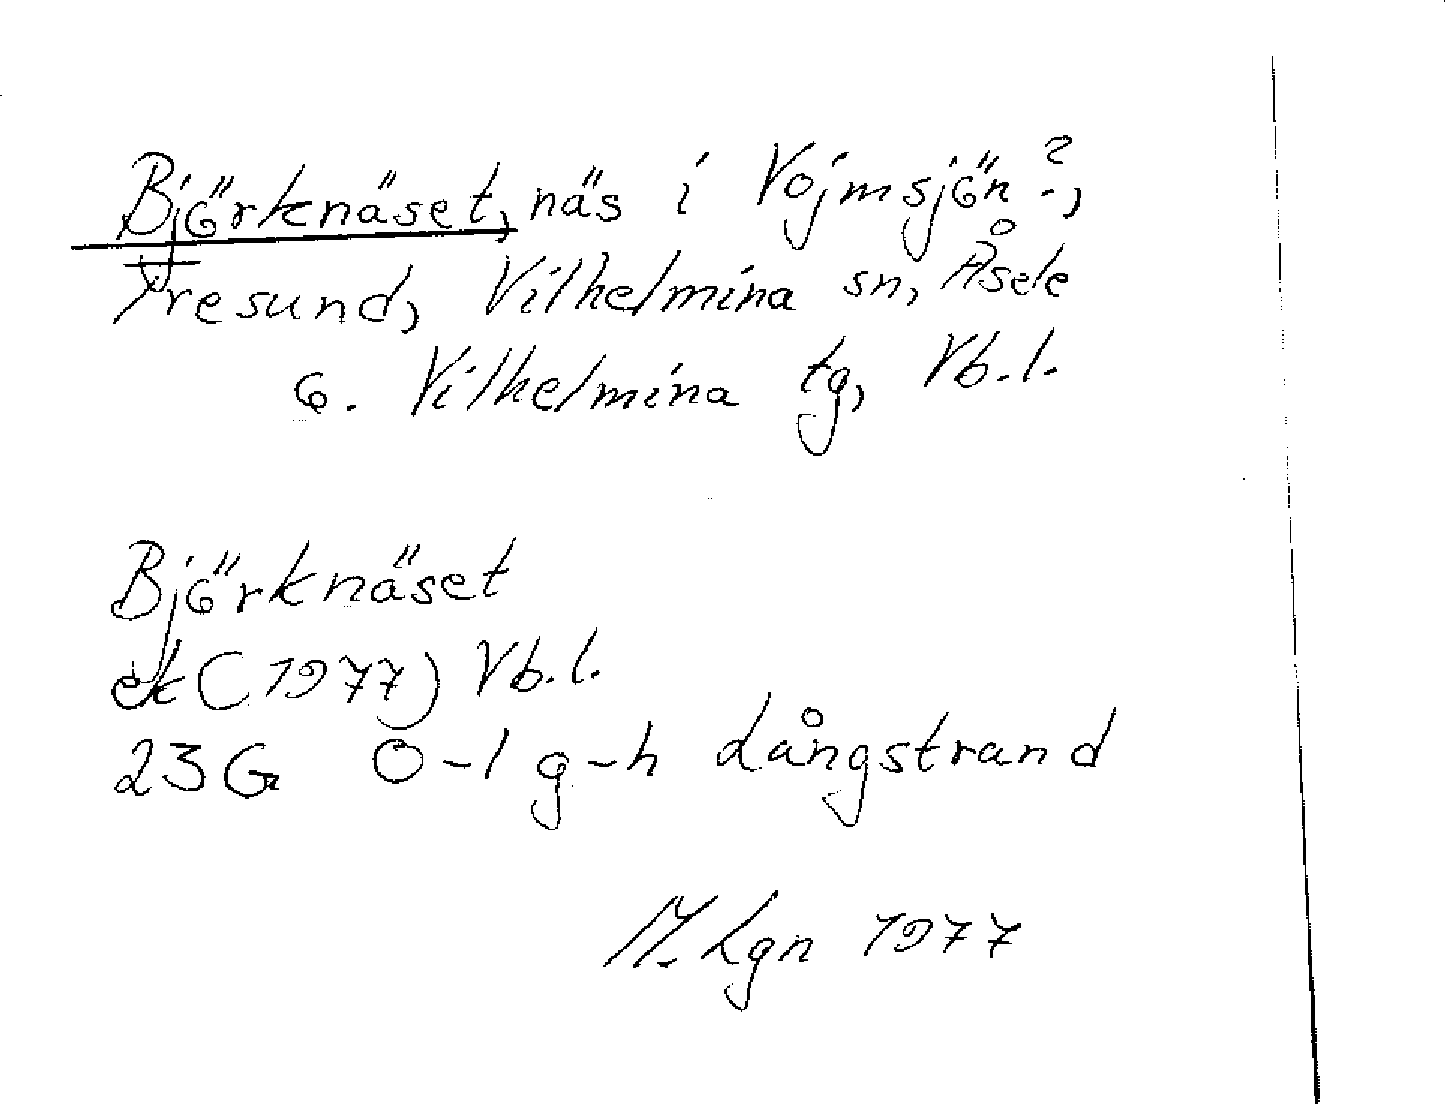 Björknäset, näs i Vojmsjön?,
Yresund, Vilhelmina sn, Åsele
o. Vilhelmina tg, Vb.l.
Björknäset
ek (1977) Vb.l.
23G 0-1 g-h Långstrand
M. Lgn 1977